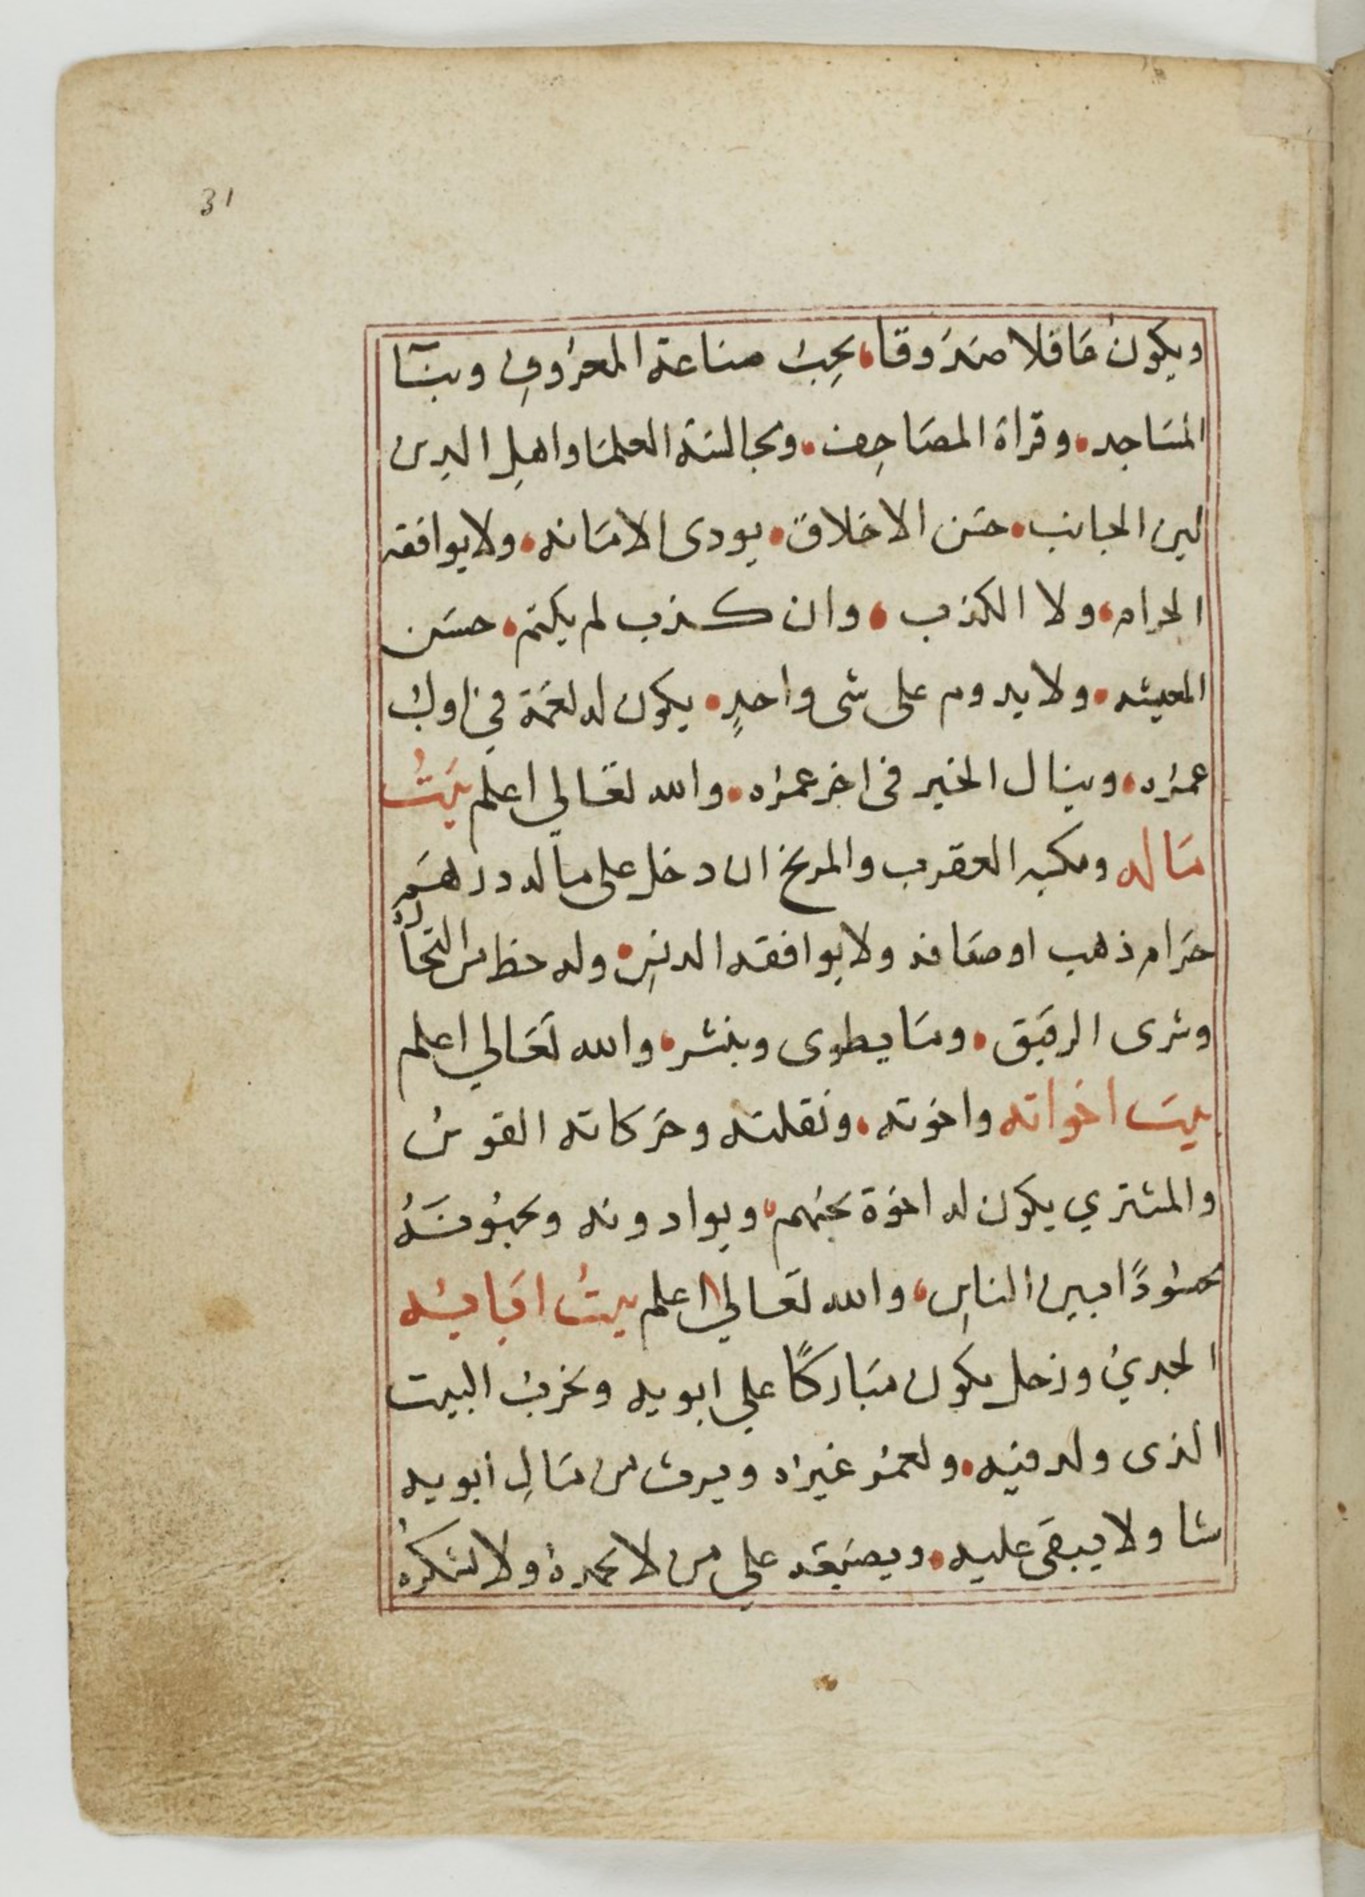 31
ويكون عاقلا صدوقا، يحب صناعة المعروف وبنآ
المساجد. وقراة المصاحف. ومجالسة العلما واهل الدين
لين الجانب. حسن الاخلاق. يودى الامانه. ولا يوافقه
الحرام، ولا الكذب. وان كذب لم يكتم. حسن
المعيشه. ولا يدوم على شى واحدٍ. يكون له نعمة في اول
عمره. وينال الخير فى اخر عمره. والله تعالي اعلم بيتُ
ماله ومكسبه العقرب والمريخ ان دخل على ماله درهم
حرام ذهب او ضعافه ولا يوافقه الدنس. وله حظ من التجارة
وشرى الرقيق. وما يطوى وينشر، والله تعالي اعلم
بيت اخواته واخوته. ونقلته وحركاته القوس
والمشتري يكون له اخوة يحبهم، ويوادونه ويحبونه
محسودًا بين الناسِ، والله تعالي اعلم بيتُ ابايه
الجدي وزحل يكون مباركًا علي ابويه ويخرب البيت
الذى ولد فيه. ويعمر غيره ويرث من مالِ ابويه
شا ولا يبقى عليه. وينفقه علي من لا يحمده ولا يشكره